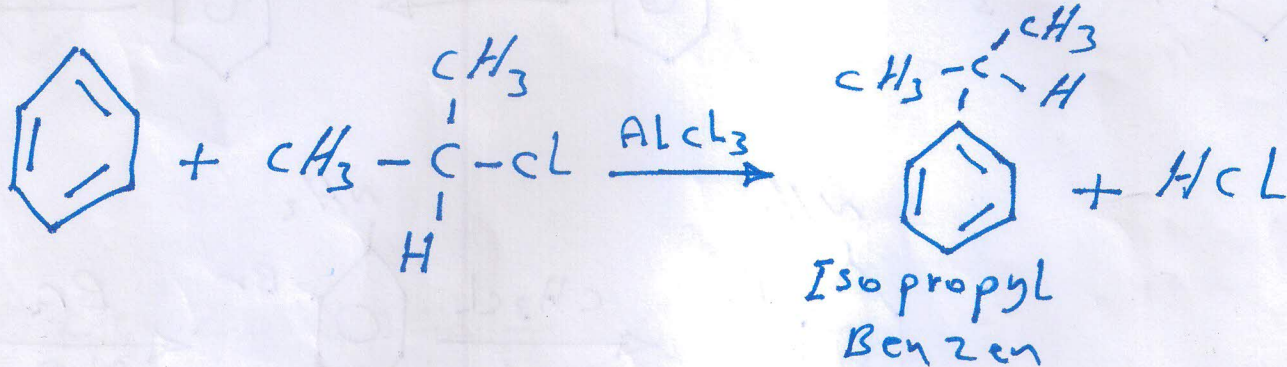 CH3
CH3 - C - CL
H
+
ALCL3
CH3
CH3 - C - H
+ HCL
Isopropyl
Benzen